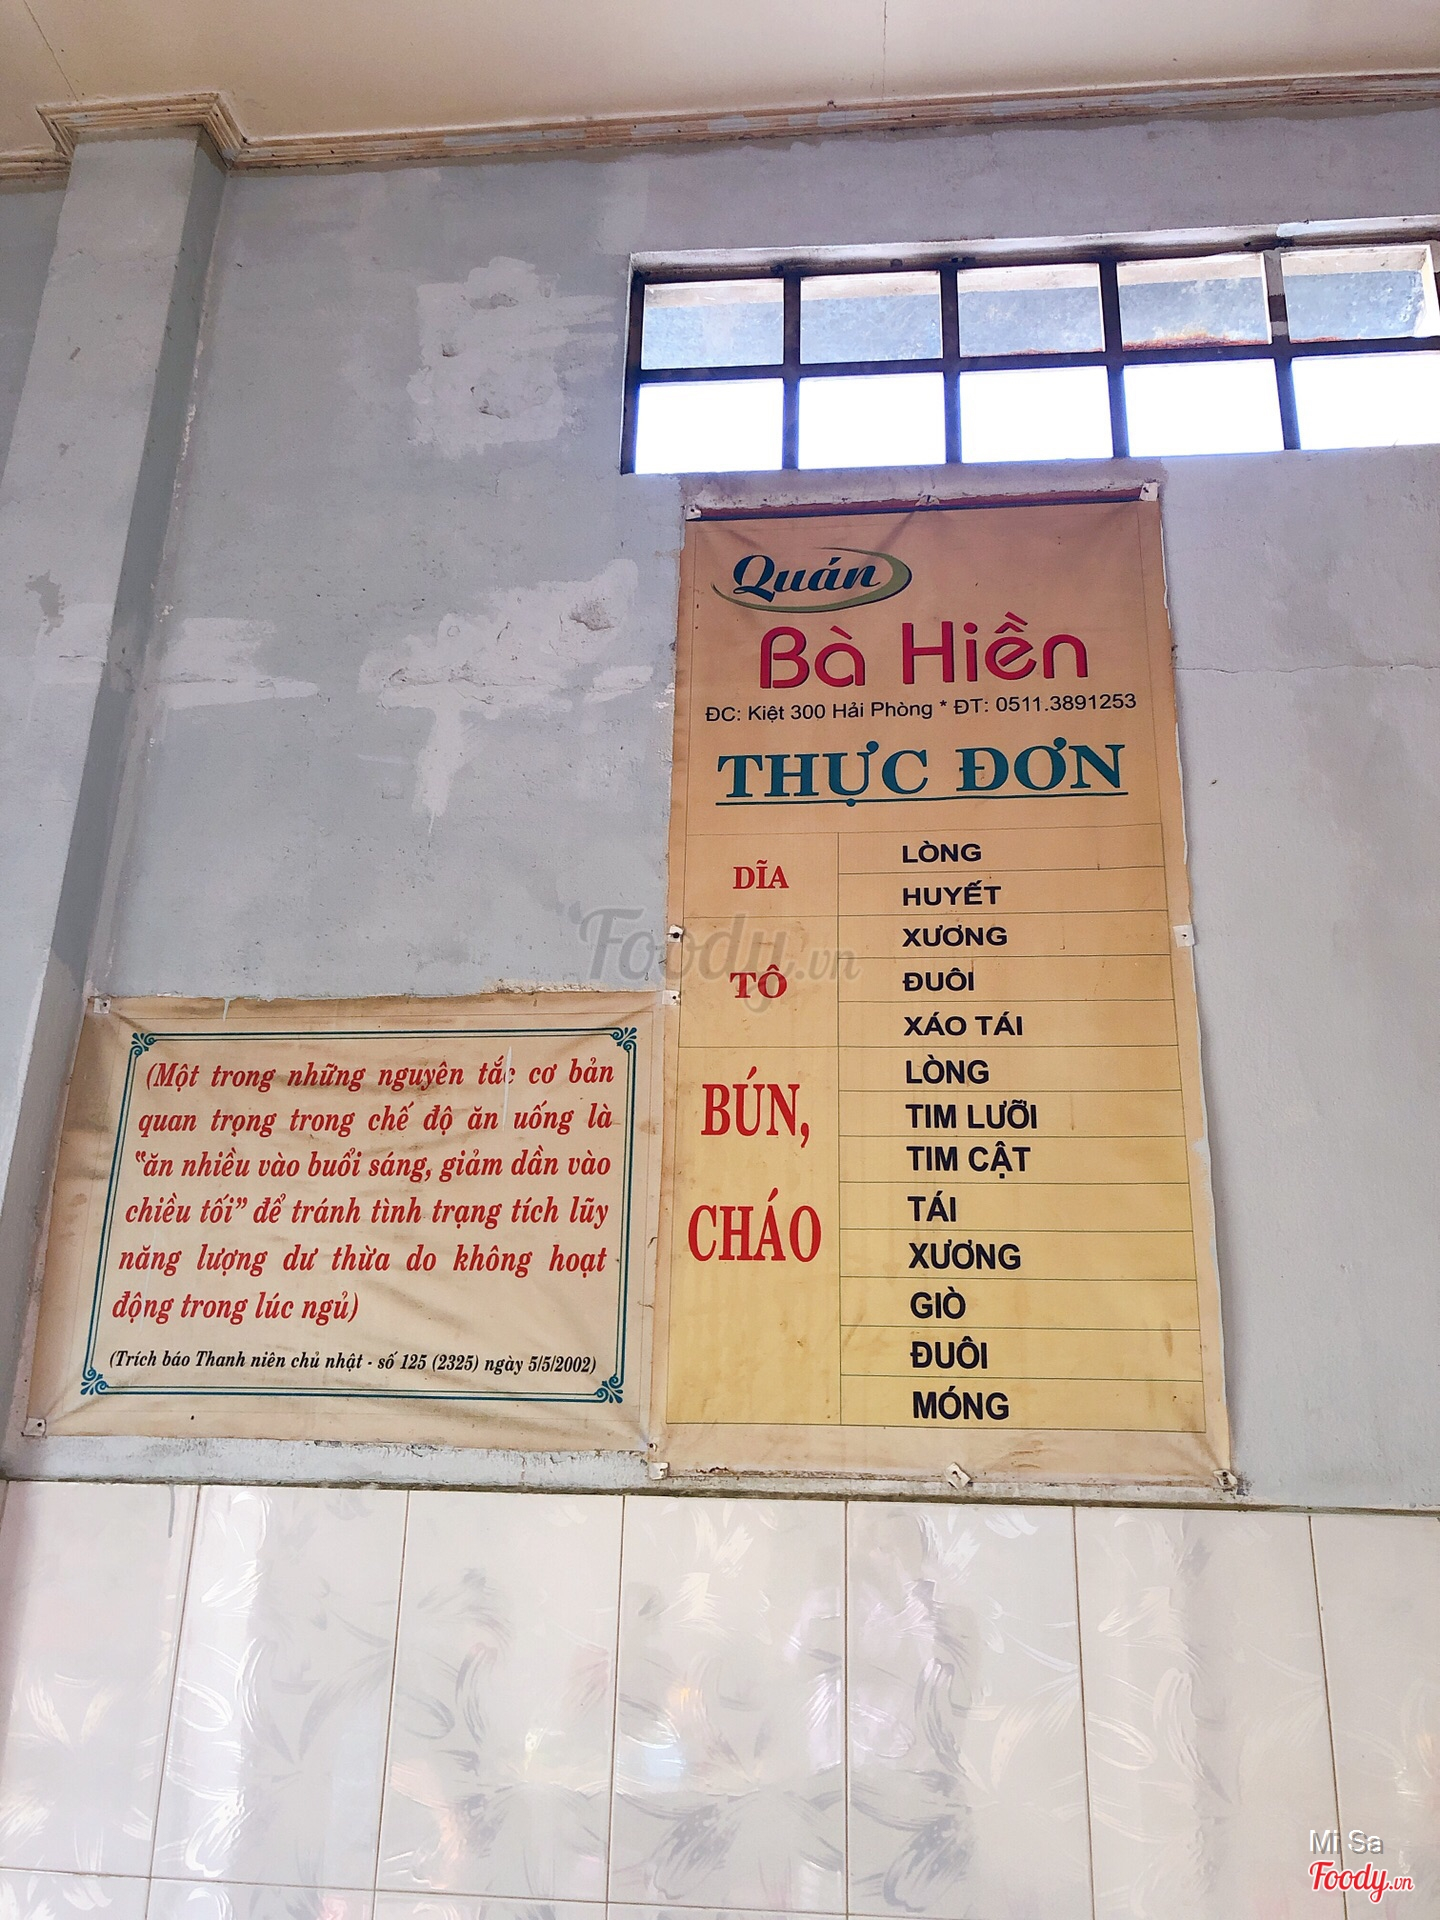 Quán
Bà Hiền
ĐC: Kiệt 300 Hải Phòng * ĐT: 0511.3891253
THỰC ĐƠN
DĨA
LÒNG
HUYẾT
TÔ
XƯƠNG
ĐUÔI
XÁO TÁI
BÚN,
CHÁO
LÒNG
TIM LƯỠI
TIM CẬT
TÁI
XƯƠNG
GIÒ
ĐUÔI
MÓNG
(Một trong những nguyên tắc cơ bản
quan trọng trong chế độ ăn uống là
"ăn nhiều vào buổi sáng, giảm dần vào
chiều tối" để tránh tình trạng tích lũy
năng lượng dư thừa do không hoạt
động trong lúc ngủ)
(Trích báo Thanh niên chủ nhật - số 125 (2325) ngày 5/5/2002)
Foody.vn
Mi Sa
Foody.vn